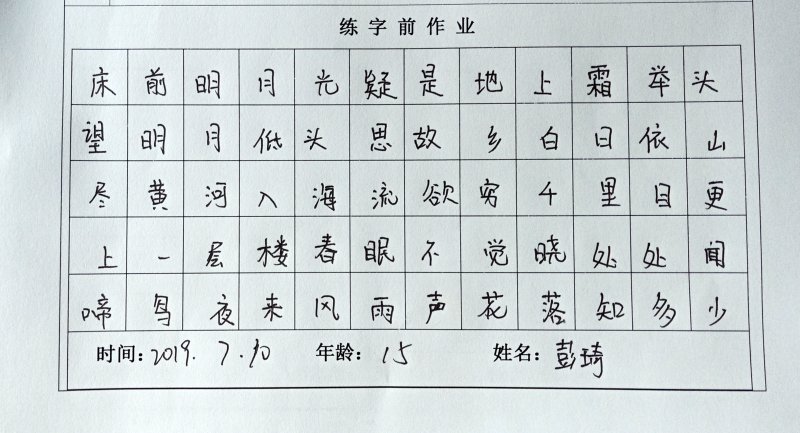 练字前作业
床前明月光疑是地上霜举头
望明月低头思故乡白日依山
尽黄河入海流欲穷千里目更
上一层楼春眠不觉晓处处闻
啼鸟夜来风雨声花落知多少
时间:2019.7.30 年龄:15 姓名:彭琦